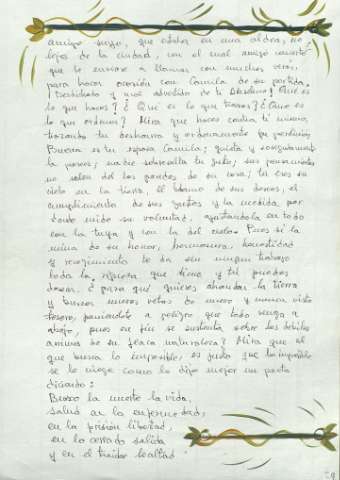 amigo suyo, que estaba en una aldea, no
lejos de la ciudad, con el cual amigo concertó
que le enviase a llamar con muchas veras,
para hacer ocasión con Camila de su partida.
¡Desdichado y mal advertido de ti Anselmo! ¿Qué es
lo que haces? ¿Qué es lo que trazas? ¿Qué es
lo que ordenas? Mira que haces contra ti mismo,
trazando tu deshonra y ordenando tu perdición.
Buena es tu esposa Camila; quieta y sosegadamente
la posees; nadie sobresalta tu gusto; sus pensamientos
no salen de las paredes de su casa; tú eres su
cielo en la tierra, el blanco de sus deseos, el
cumplimiento de sus gustos y la medida por
donde mide su voluntad, ajustándola en todo
con la tuya y con la del cielo. Pues si la
mina de su honor, hermosura, honestidad
y recogimiento te da sin ningún trabajo
toda la riqueza que tiene y tú puedes
desear, ¿para qué quieres ahondar la tierra
y buscar nuevas vetas de nuevo y nunca visto
tesoro, poniéndote a peligro que toda venga a
abajo, pues en fin se sustenta sobre los débiles
arrimos de su flaca naturaleza? Mira que el
que busca lo imposible, es justo que lo imposible
se le niegue como lo dijo mejor un poeta
diciendo:
Busco la muerte la vida,
salud en la enfermedad,
en la prisión libertad,
en lo cerrado salida
y en el traidor lealtad